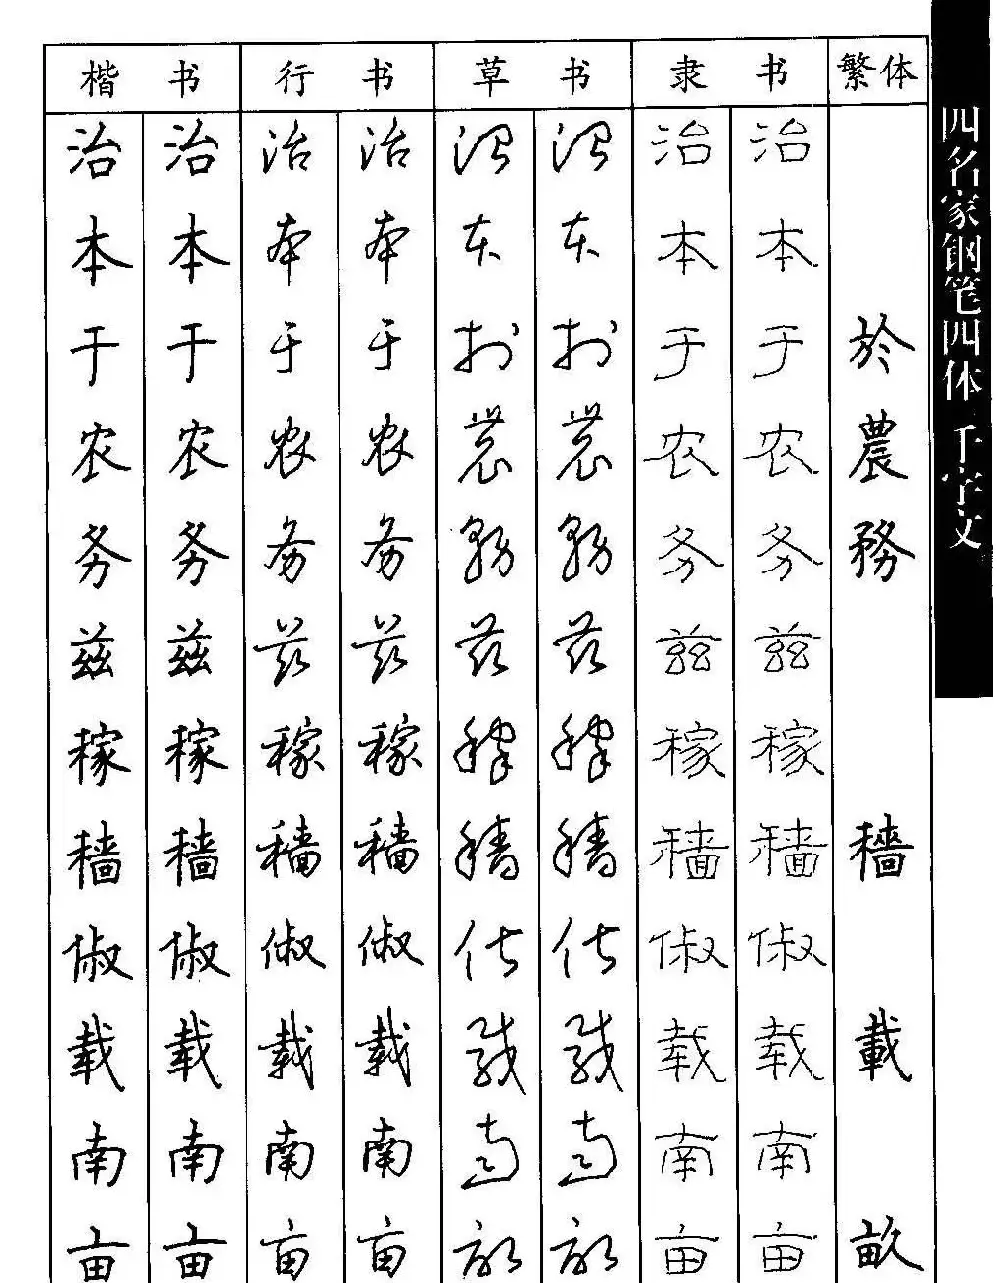 楷书 行书 草书 隶书 繁体
治 治 治 治 治 治 治 治
本 本 本 本 本 本 本 本
于 于 于 于 于 于 于 于 於
农 农 农 农 农 农 农 农 農
务 务 务 务 务 务 务 务 務
兹 兹 兹 兹 兹 兹 兹 兹
稼 稼 稼 稼 稼 稼 稼 稼
穑 穑 穑 穑 穑 穑 穑 穑 穡
俶 俶 俶 俶 俶 俶 俶 俶
载 载 载 载 载 载 载 载 載
南 南 南 南 南 南 南 南
亩 亩 亩 亩 亩 亩 亩 亩 畝
四名家钢笔四体千字文